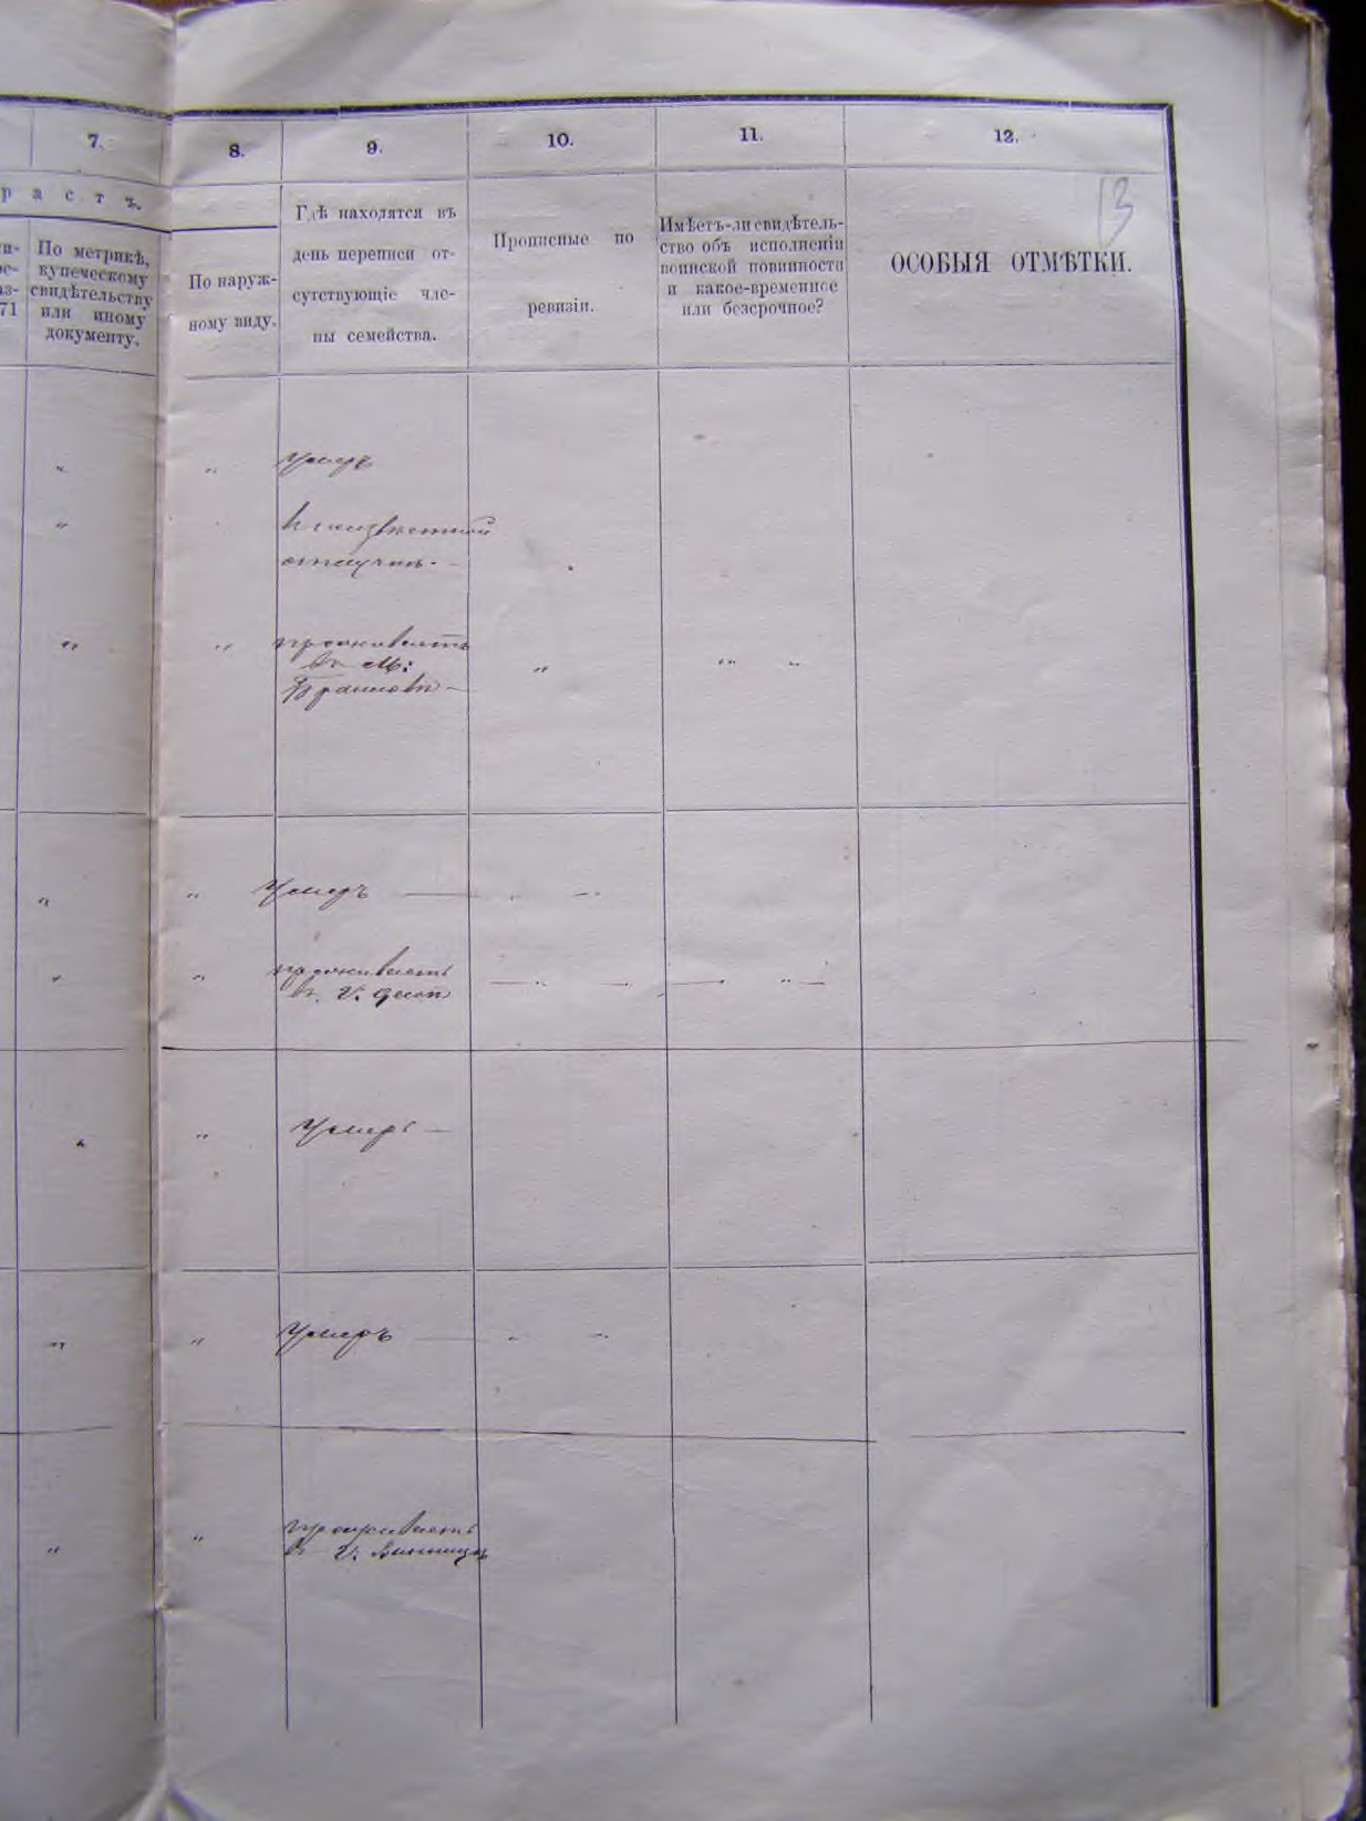 7.
8.
9.
10.
11.
12.
растъ.
13
71
По метрикѣ,
купеческому
свидѣтельству
или иному
документу.
По наруж-
ному виду.
Гдѣ находятся въ
день переписи от-
сутствующіе чле-
ны семейства.
Прописные по
ревизіи.
Имѣетъ-ли свидѣтель-
ство объ исполненіи
воинской повинности
и какое-временное
или безсрочное?
ОСОБЫЯ ОТМѢТКИ.
" " умеръ
" въ неизвѣстной
отлучкѣ. -
" " проживаетъ " " "
въ м:
Браиловѣ -
" " Умеръ — " "
" " проживаетъ
въ г.
" " Умеръ —
" " Умеръ — " "
" " проживаетъ
въ г. Винницѣ